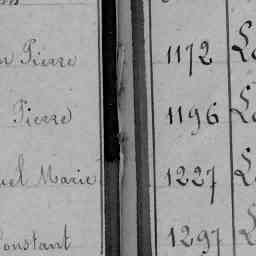 Pierre 1172
Pierre 1196
Marie 1227
Constant 1297